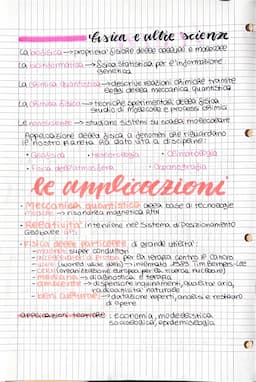 fisica e altre scienze
La biofisica → proprietà fisiche delle cellule e molecole
La bioinformatica → fisica statistica per l'informazione
genetica
La chimica quantistica → descrive reazioni chimiche tramite
leggi della meccanica quantistica
La chimica fisica → tecniche sperimentali della fisica
studio di molecole e processi chimici
Le nanoscienze → studiano sistemi su scala molecolare
Applicazione della fisica a fenomeni che riguardano
il nostro pianeta ha dato vita a discipline:
• Geofisica • Meteorologia • Climatologia
• Fisica dell'atmosfera • Oceanografia
le applicazioni
• Meccanica quantistica alla base di tecnologie
mediche → risonanza magnetica RMN
• Relatività interviene nel Sistema di Posizionamento
Globale GPS
• Fisica delle particelle di grande utilità:
magneti super conduttori
acceleratori a protoni per la terapia contro il cancro
www (world wide web) → inventato 1989 Tim Berners-Lee
CERN (organizzazione europea per la ricerca nucleare)
medicina → diagnostica e terapia
ambiente → dispersione inquinamenti, qualità aria,
radioattività naturale
beni culturali → datazione reperti, analisi e restauro
di opere
applicazioni teoriche: Economia, modellistica
sociologica, epidemiologia